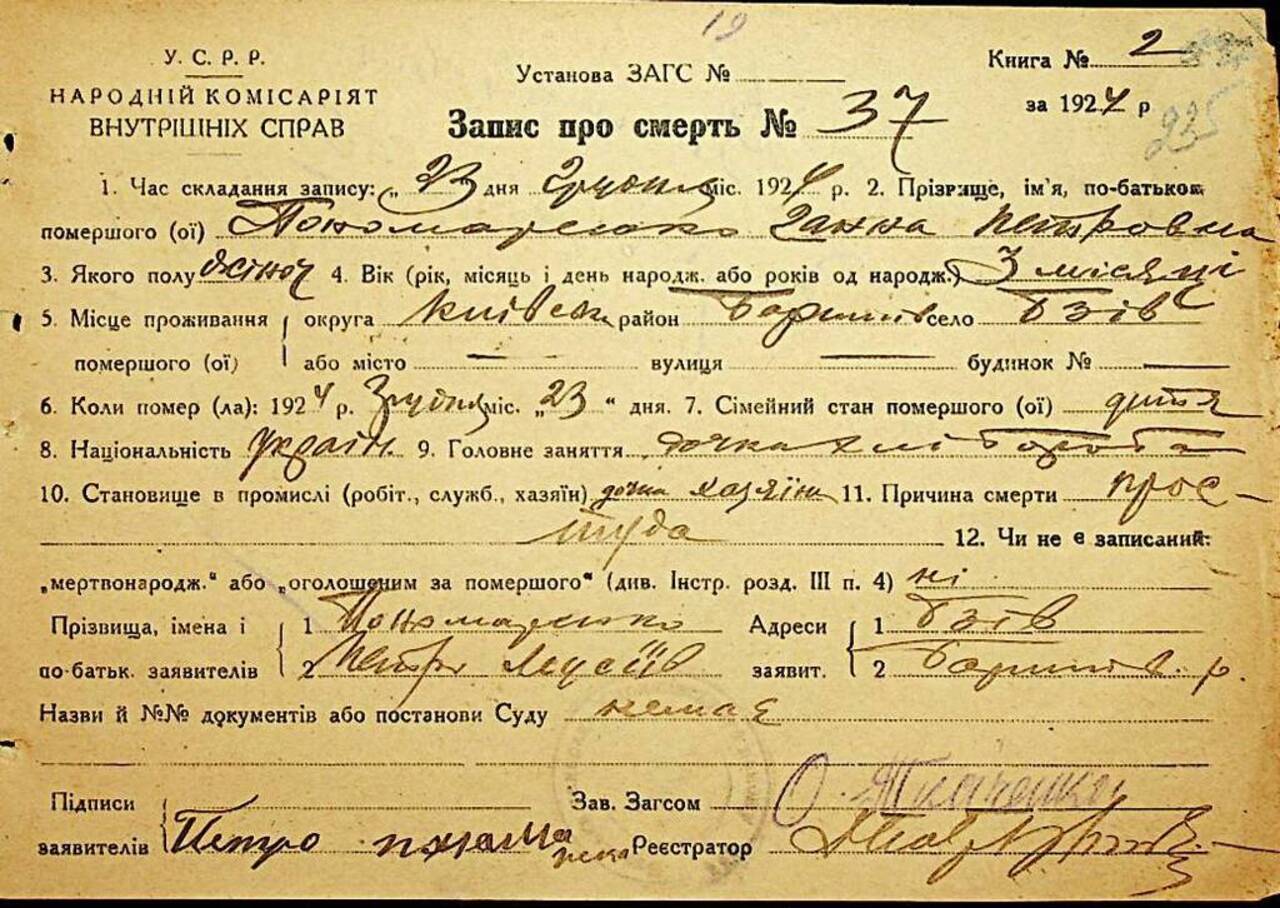 19
У. С. Р. Р.
НАРОДНІЙ КОМІСАРІЯТ
ВНУТРІШНІХ СПРАВ
Установа ЗАГС №
Книга № 2
за 1924 р
235
Запис про смерть № 37
1. Час складання запису: „23" дня Грудня міс. 1924 р. 2. Прізвище, ім'я, по-батькові
помершого (ої) Пономаренко Ганна Петровна
3. Якого полу жіноч 4. Вік (рік, місяць і день народж. або років од народж.) 3 місяці
5. Місце проживання округа Київськ район Баришів село Бзів
помершого (ої) або місто — вулиця — будинок № —
6. Коли помер (ла): 1924 р. Грудня міс. „23" дня. 7. Сімейний стан помершого (ої) дитя
8. Національність україн. 9. Головне заняття дочка хлібороба
10. Становище в промислі (робіт., служб., хазяїн) дочка хазяїна 11. Причина смерти прос-
туда 12. Чи не є записаний:
„мертвонародж." або „оголошеним за помершого" (див. Інстр. розд. III п. 4) ні
Прізвища, імена і 1 Пономаренко Адреси 1 Бзів
по-батьк. заявителів 2 Петро Мусіїв заявит. 2 Баришів. р.
Назви й №№ документів або постанови Суду немає
Підписи Зав. Загсом О. Ткаченко
заявителів Петро понома ренко Реєстратор